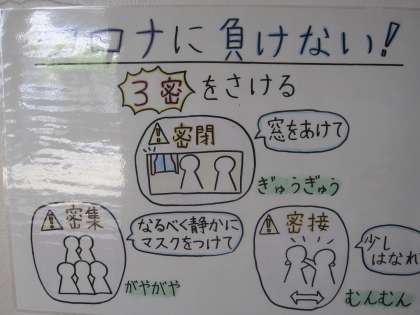 コロナに負けない!
3密をさける
密閉
窓をあけて
ぎゅうぎゅう
密集
なるべく静かに
マスクをつけて
がやがや
密接
少し
はなれ
むんむん